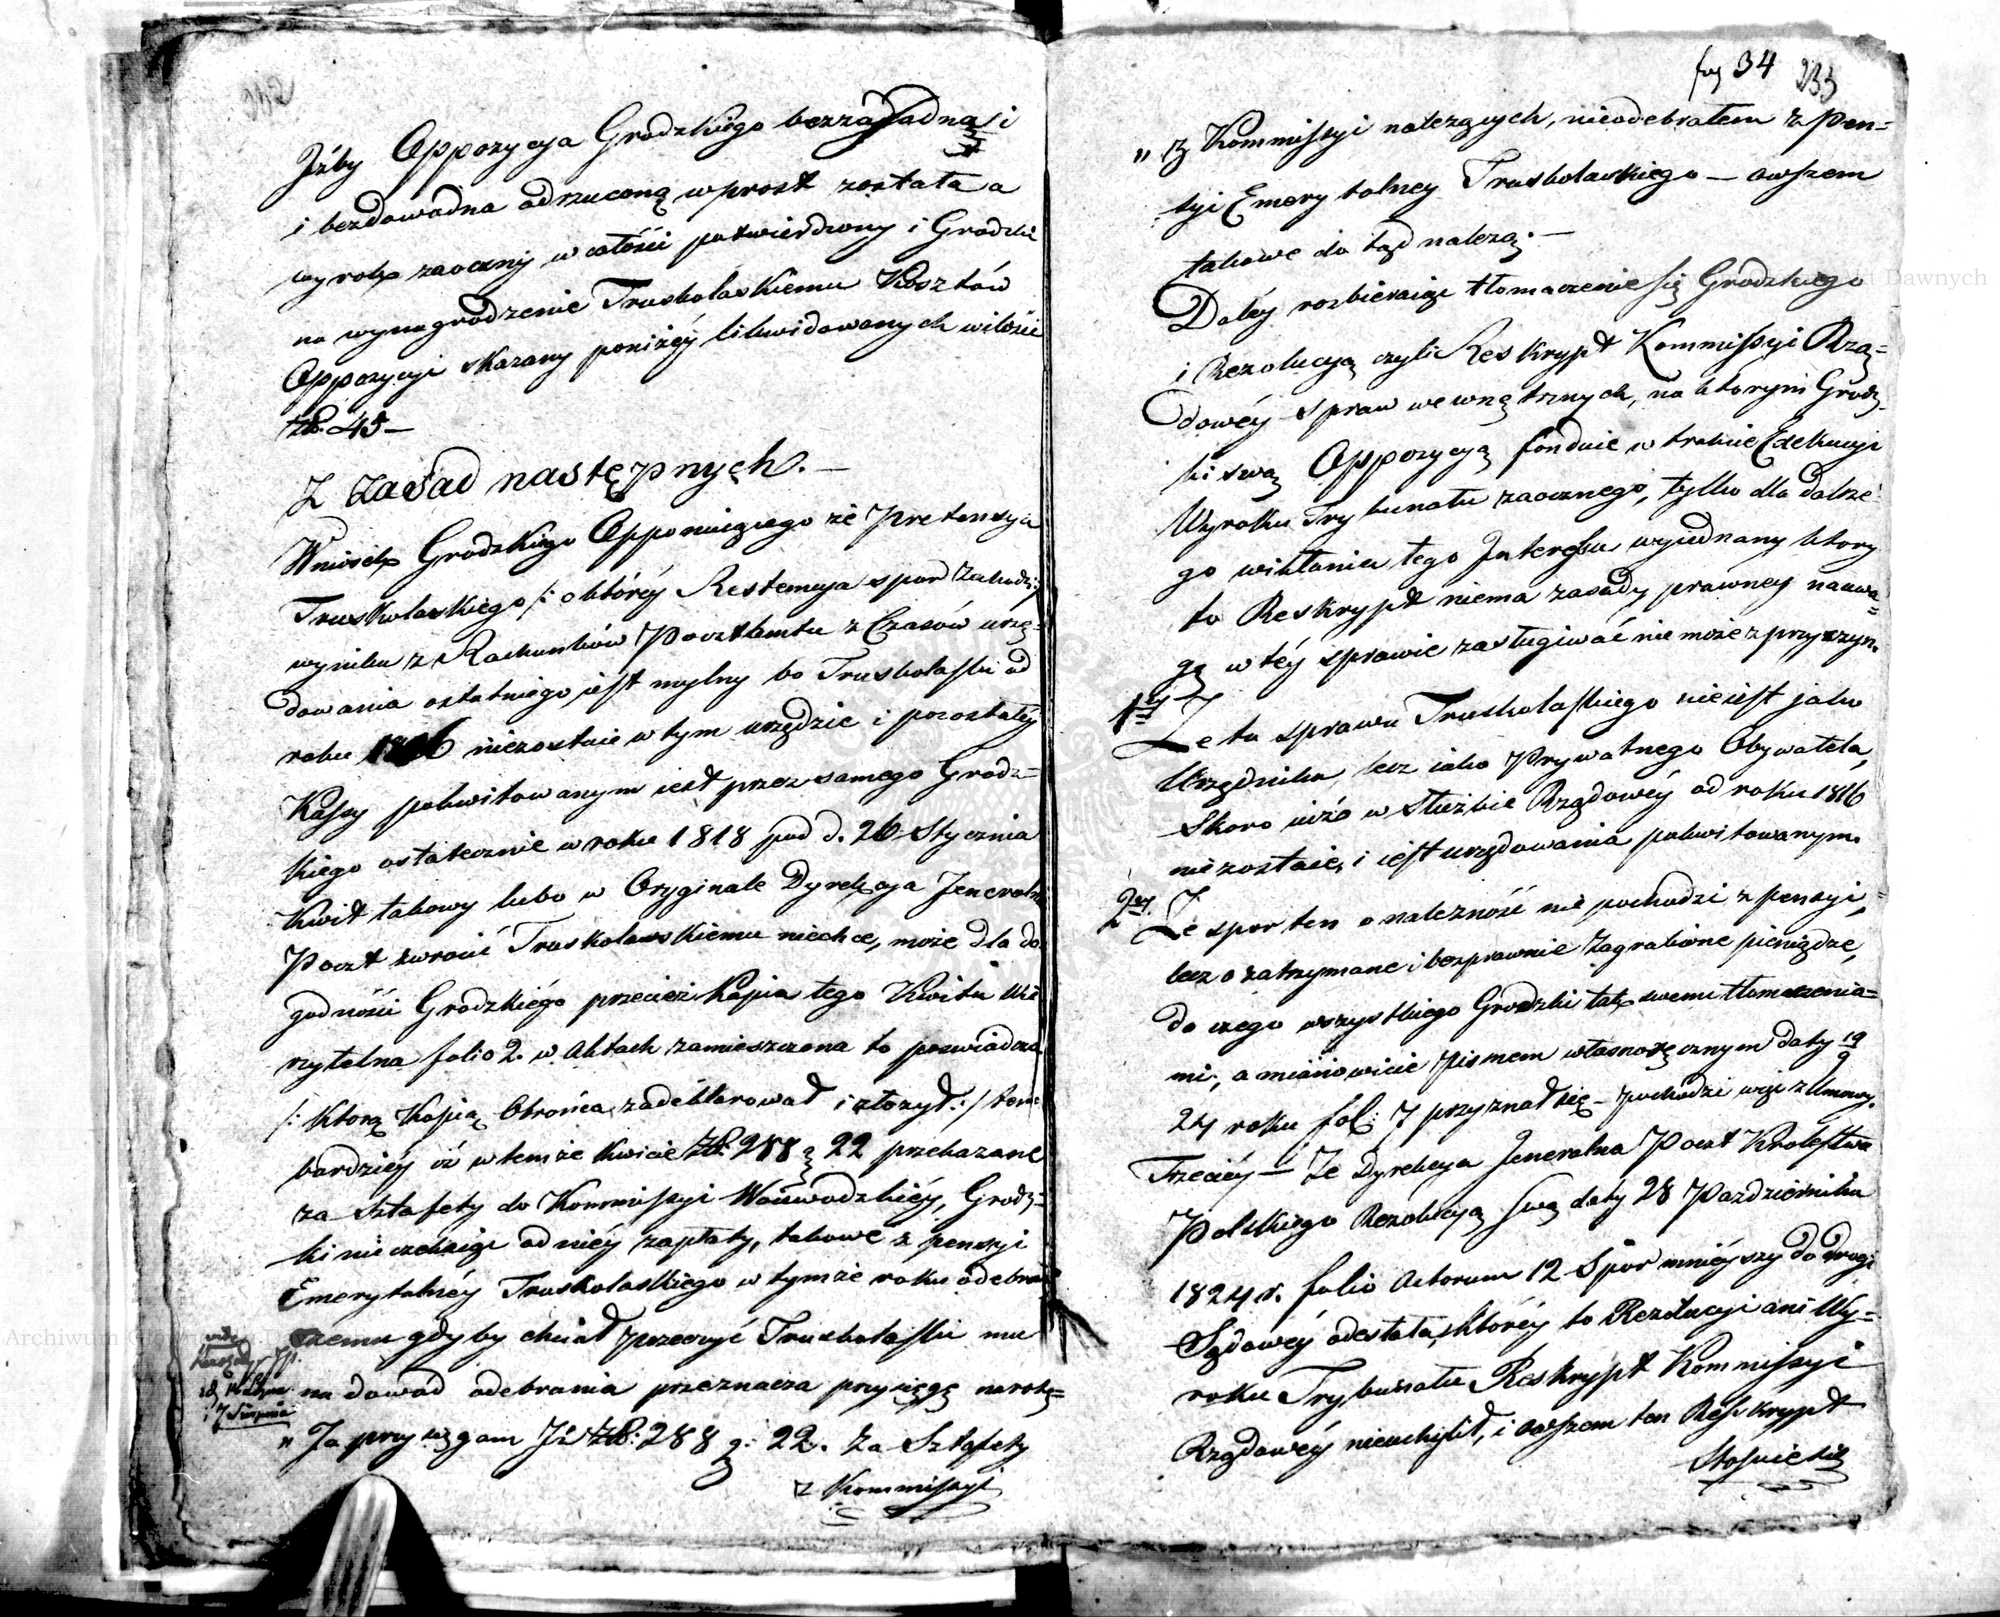 Jżby Oppozycya Grodzkiego bezzasadną i
i bezdowodna odrzuconą wprost została a
wyrok zaoczny w całości potwierdzony i Grodzki
na wynagrodzenie Truskolaskiemu Kosztów
Oppozycyi skazany poniżéy likwidowanych w ilości
złp. 45 —
Z Zasad następnych. —
Wniosek Grodzkiego Opponuiącego że Pretensya
Truskolaskiego /: o któréy Restemcya spor zachodzi :/
wynika z Rachunków Pocztamtu z Czasów urzę-
dowania ostatniego jest mylny bo Truskolaski od
roku 1816 niezostaie w tym urzędzie i pozostałéy
Kassy pokwitowanym iest przez samego Grodz-
kiego ostatecznie w roku 1818 pod d. 26 Stycznia
Kwit takowy lubo w Oryginale Dyrekcya Jeneralna
Poczt zwrócić Truskolawskiemu niechce, może dla do
godności Grodzkiégo przecież Kopia tego Kwitu Wie
rzytelna folio 2. w Aktach zamieszczona to poświadcza
/: Którą Kopią Obrońca zadeklarował i złożył :/ tem
bardziéy iż w temże kwicie złp. 288 g 22 przekazane
za sztafety do Kommissyi Woiewodzkiéy, Grodz-
ki nieczekaiąc od niéy zapłaty, takowe z pensyi
Emerytalnéy Truskolaskiego w tymże roku odebrał
czemu gdyby chciał przeczyć Truskolaski mu
na dowód odebrania przeznacza przysięgę na rotę=
„ Ja przysięgam Jż złp: 288 g: 22. za Sztafety
z Kommissyi
fol 34 233
„ z Kommissyi należących, nieodebrałem z Pen=
syi Emerytalney Truskolawskiego — owszem
takowe do tąd należą. —
Daléy rozbieraiąc tłomaczenie się Grodzkiego
i Rezolucyą czyli Reskrypt Kommissyi Rzą=
dowéy spraw wewnętrznych, na którym Grodz-
ki swą Oppozycyą fonduie w trakcie Exekucyi
Wyroku Trybunału zaocznego, tylko dla dalsze
go wikłania tego Interessu wyiednany ktory
to Reskrypt niema zasady prawney na uwa=
gę w téy sprawie zasługiwać nie może z przyczyn.
1szy Że ta sprawa Truskolaskiego nieiest jako
Urzędnika lecz iako Prywatnego Obywatela,
Skoro iuż w Służbie Rządowéy od roku 1816
niezostaie, i iest urzędowania pokwitowanym.
2ey. Że spor ten o należność nie pochodzi z pensyi,
lecz o zatrzymane i bezprawnie zagrabione pieniądze,
do czego wszystkiego Grodzki tak swemi tłomaczenia=
mi, a mianowicie Pismem własnoręcznym daty 19/9
24 roku fol: 7 przyznał się — pochodzi więc z Umowy.
Trzeciéy — Że Dyrekcya Jeneralna Poczt Królestwa
Polskiego Rezolucyą swą daty 28 Pazdziernika
1824 r. folio Actorum 12 Spór ninieyszy do drogi
Sądowéy odesłała, któréy to Rezolucyi ani Wy-
roku Trybunału Reskrypt Kommissyi
Rządowéy nieuchylił, i owszem ten Reskrypt
Stosuie się
Archiwum Główne Akt Dawnych